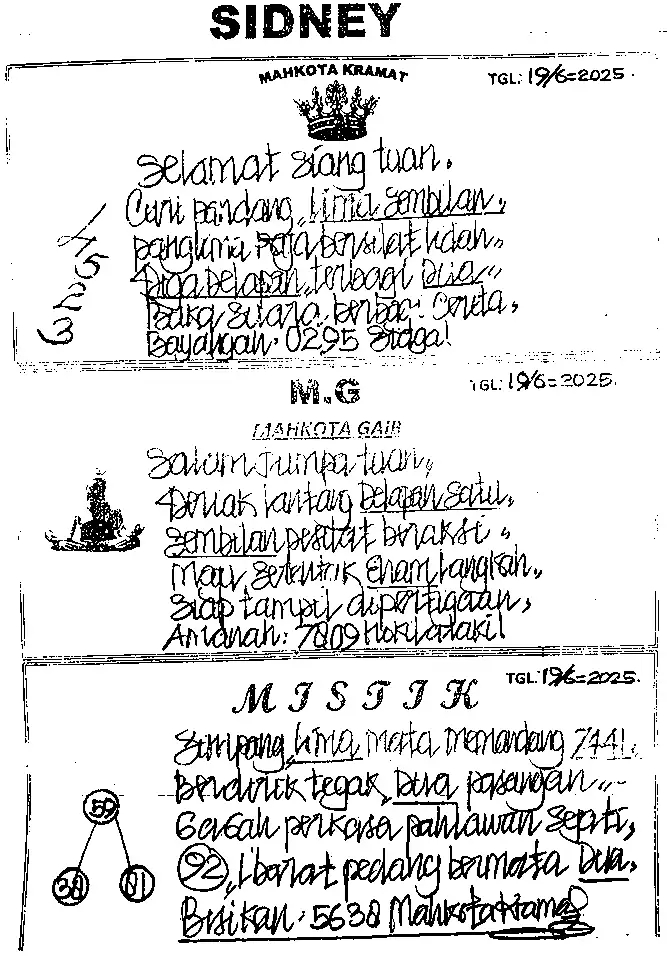 SIDNEY
MAHKOTA KRAMAT
TGL: 19/6=2025.
Selamat siang tuan,
Curi pandang, lima sembilan,
panglima Raja bersilat lidah,
Tiga Delapan, terbagi Dua,
Buka suara berbagi Cerita,
Bayangan: 0295 siaga!
M.G
TGL: 19/6=2025.
MAHKOTA GAIB
Salam jumpa tuan,
Teriak lantang Delapan satu,
Sembilan pesilat beraksi,
Maju serentak Enam langkah,
Siap tampil dipertigaan,
Amanah: 7809
MISTIK
TGL: 19/6=2025.
Simpang, lima mata memandang 7441,
Berdetik tegak, Dua pasangan
Gagah perkasa pahlawan sejati,
92, Ibarat pedang bermata Dua,
Bisikan: 5638 Mahkota
59
38